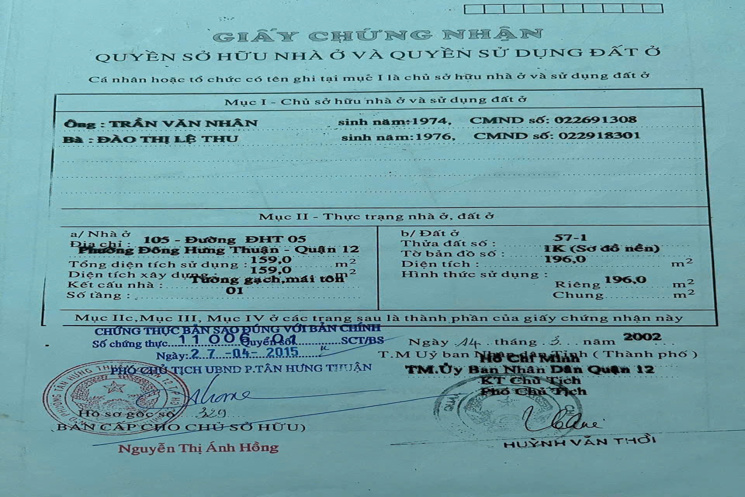 GIẤY CHỨNG NHẬN
QUYỀN SỞ HỮU NHÀ Ở VÀ QUYỀN SỬ DỤNG ĐẤT Ở
Cá nhân hoặc tổ chức có tên ghi tại mục I là chủ sở hữu nhà ở và sử dụng đất ở
Mục I - Chủ sở hữu nhà ở và sử dụng đất ở
Ông : TRẦN VĂN NHÂN sinh năm:1974, CMND số: 022691308
Bà : ĐÀO THỊ LỆ THU sinh năm:1976, CMND số: 022918301
Mục II - Thực trạng nhà ở, đất ở
a/ Nhà ở
Địa chỉ : 105 - Đường ĐHT 05
Phường Đông Hưng Thuận - Quận 12
Tổng diện tích sử dụng : 159,0 m²
Diện tích xây dựng : 159,0 m²
Kết cấu nhà : Tường gạch,mái tôn
Số tầng : 01
b/ Đất ở
Thửa đất số : 57-1
Tờ bản đồ số : 1K (Sơ đồ nền)
Diện tích : 196,0 m²
Hình thức sử dụng :
Riêng 196,0 m²
Chung m²
Mục IIc,Mục III, Mục IV ở các trang sau là thành phần của giấy chứng nhận này
CHỨNG THỰC BẢN SAO ĐÚNG VỚI BẢN CHÍNH
Số chứng thực 11006 Quyển số 01 SCT/BS
Ngày: 27 -04- 2015
PHÓ CHỦ TỊCH UBND P.TÂN HƯNG THUẬN
Hồ sơ gốc số 329
(BẢN CẤP CHO CHỦ SỞ HỮU)
Nguyễn Thị Ánh Hồng
Ngày 14 tháng 3 năm 2002
T.M Uỷ ban Nhân dân Tỉnh ( Thành phố )
Hồ Chí Minh
TM.Ủy Ban Nhân Dân Quận 12
KT Chủ Tịch
Phó Chủ Tịch
HUỲNH VĂN THỚI